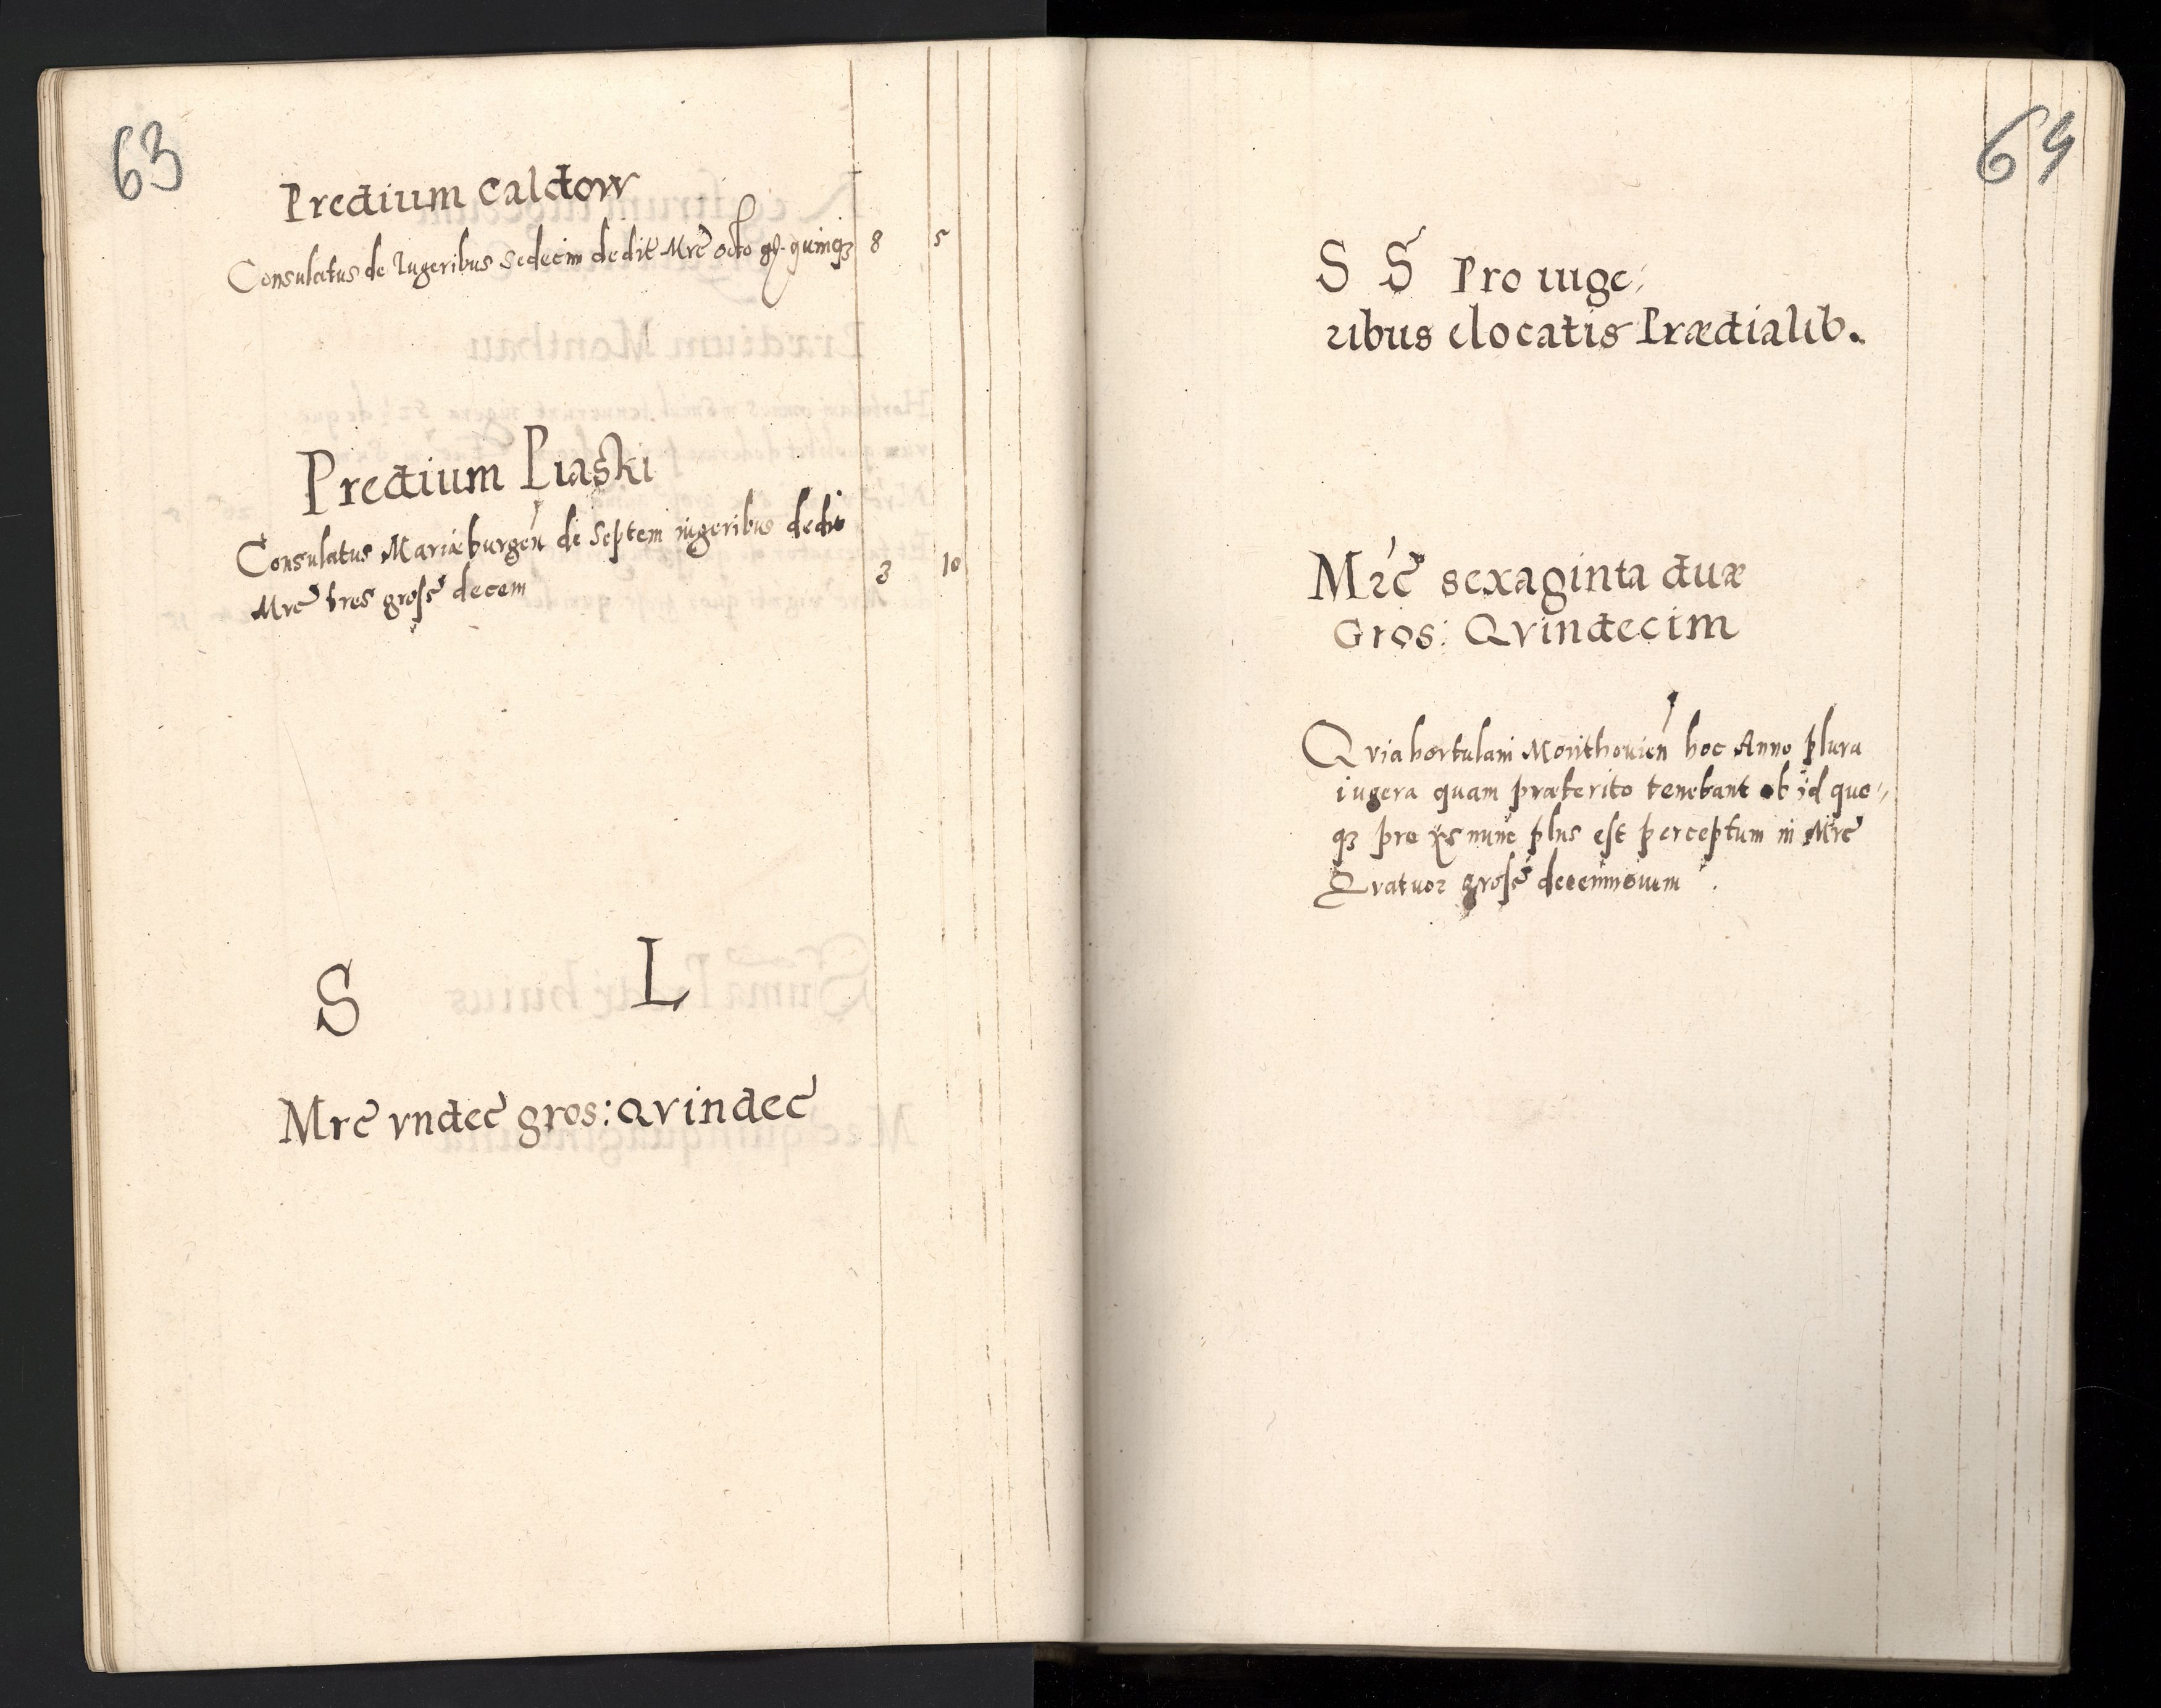 63
Predium Caldow
Consulatus de Iugeribus Sedecim dedit Mrc octo gr. quinqз 8 5
Predium Piaski
Consulatus Mariæburgen de Septem iugeribus dedit
Mrc tres grosś decem 3 10
S L
Mrc vndec gros: Qvindec
64
S S Pro iuge:
ribus elocatis Prædialib.
Mrc sexaginta duæ
Gros: Qvindecim
Qvia hortulani Monthouien hoc Anno plura
iugera quam præterito tenebant ob id quo-
qз pro ijs nunc plus est perceptum in Mrc
Qvatuor grosś decemnouem .